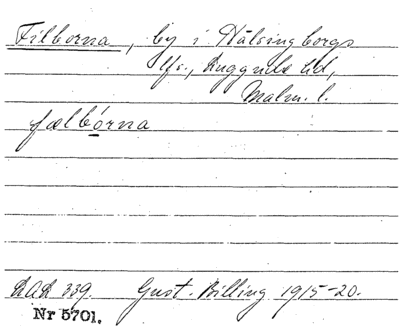 Filborna, by i Hälsingborgs
lfs., Luggude hd,
Malm. l.
fælbórna
LAL 339. Gust. Billing 1915-20.
Nr 5701.